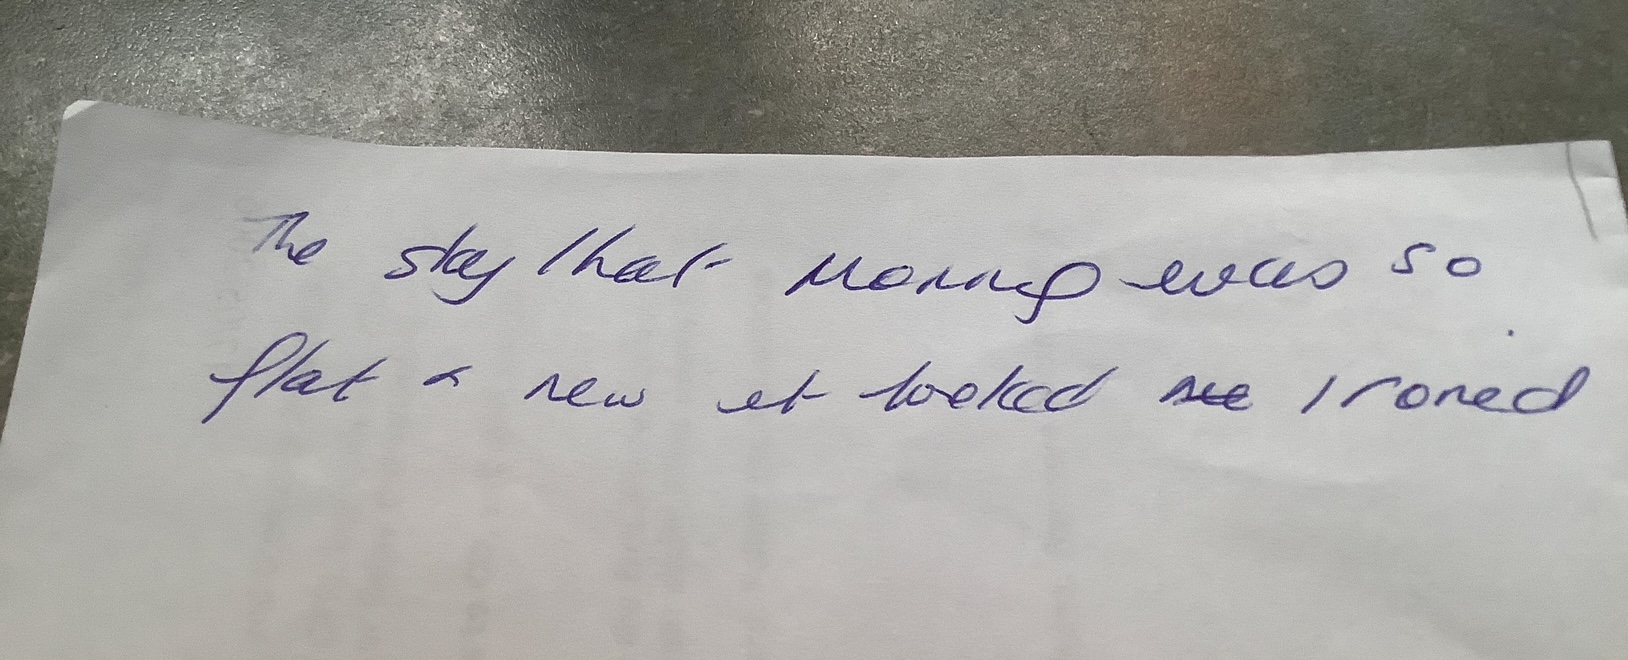 The sky that morning was so
flat & new it looked ironed